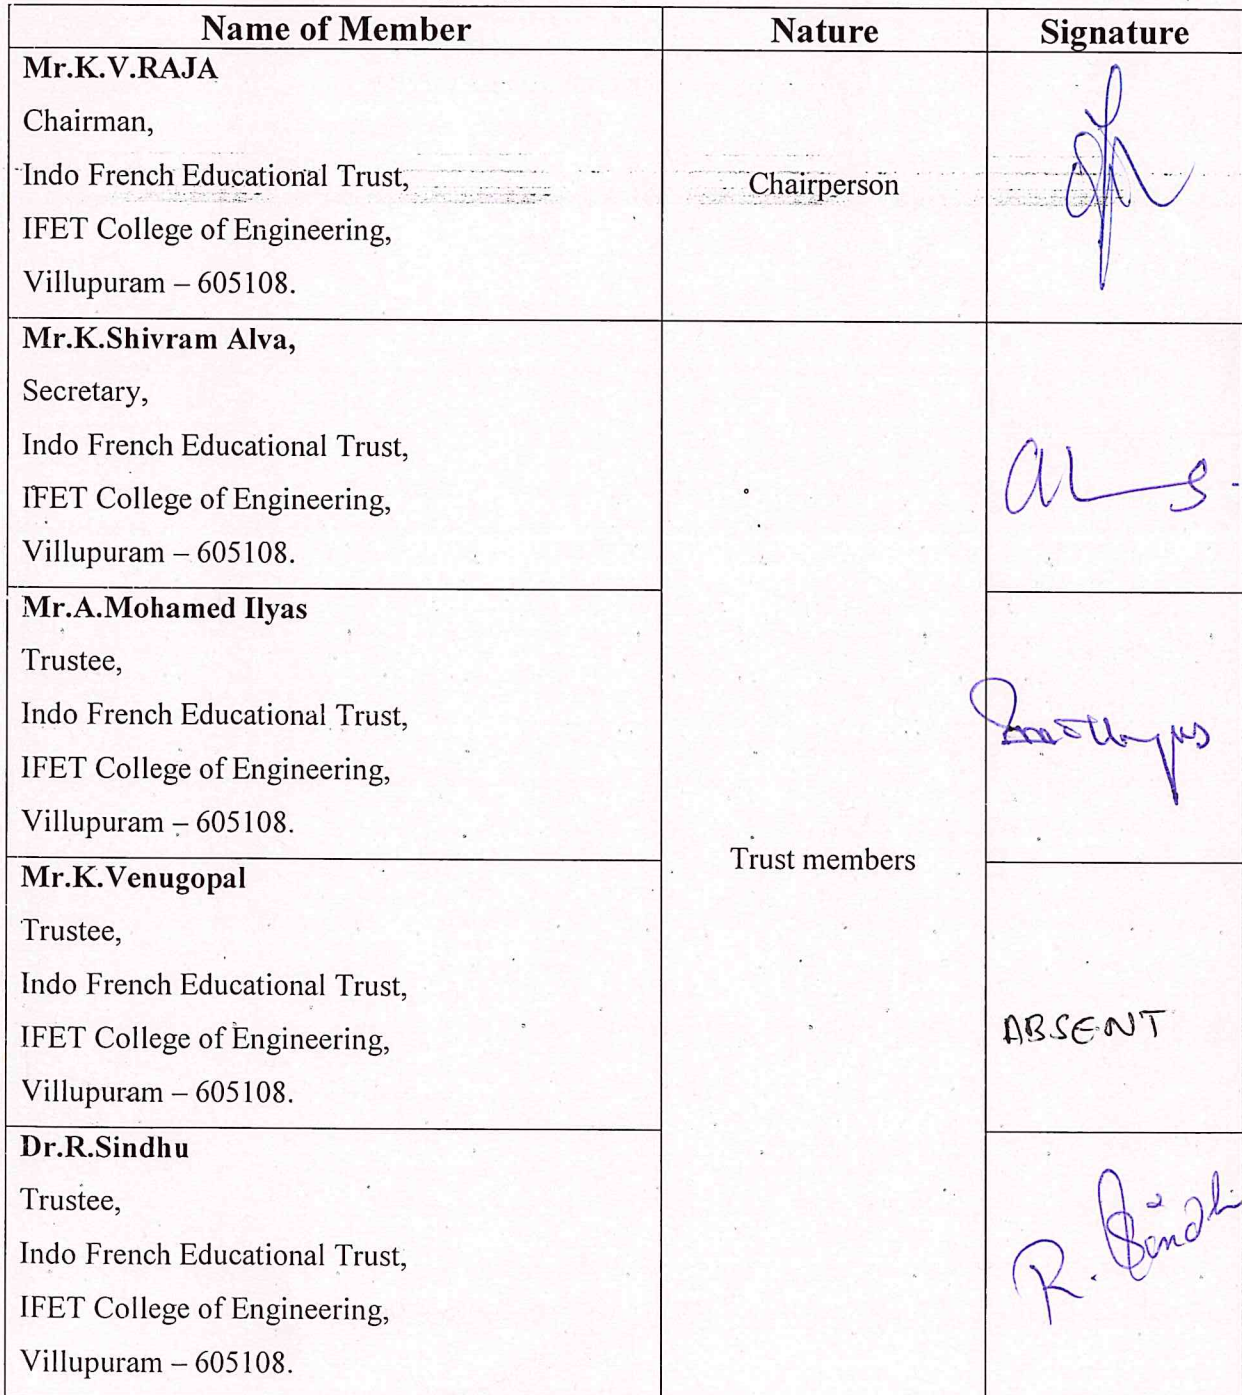 Name of Member Nature Signature
Mr.K.V.RAJA
Chairman,
Indo French Educational Trust,
Chairperson
IFET College of Engineering,
Villupuram – 605108.
Mr.K.Shivram Alva,
Secretary,
Indo French Educational Trust,
IFET College of Engineering,
Villupuram – 605108.
Mr.A.Mohamed Ilyas
Trustee,
Indo French Educational Trust,
IFET College of Engineering,
Villupuram – 605108.
Trust members
Mr.K.Venugopal
Trustee,
Indo French Educational Trust,
IFET College of Engineering,
ABSENT
Villupuram – 605108.
Dr.R.Sindhu
Trustee,
Indo French Educational Trust,
R. Sindh
IFET College of Engineering,
Villupuram – 605108.